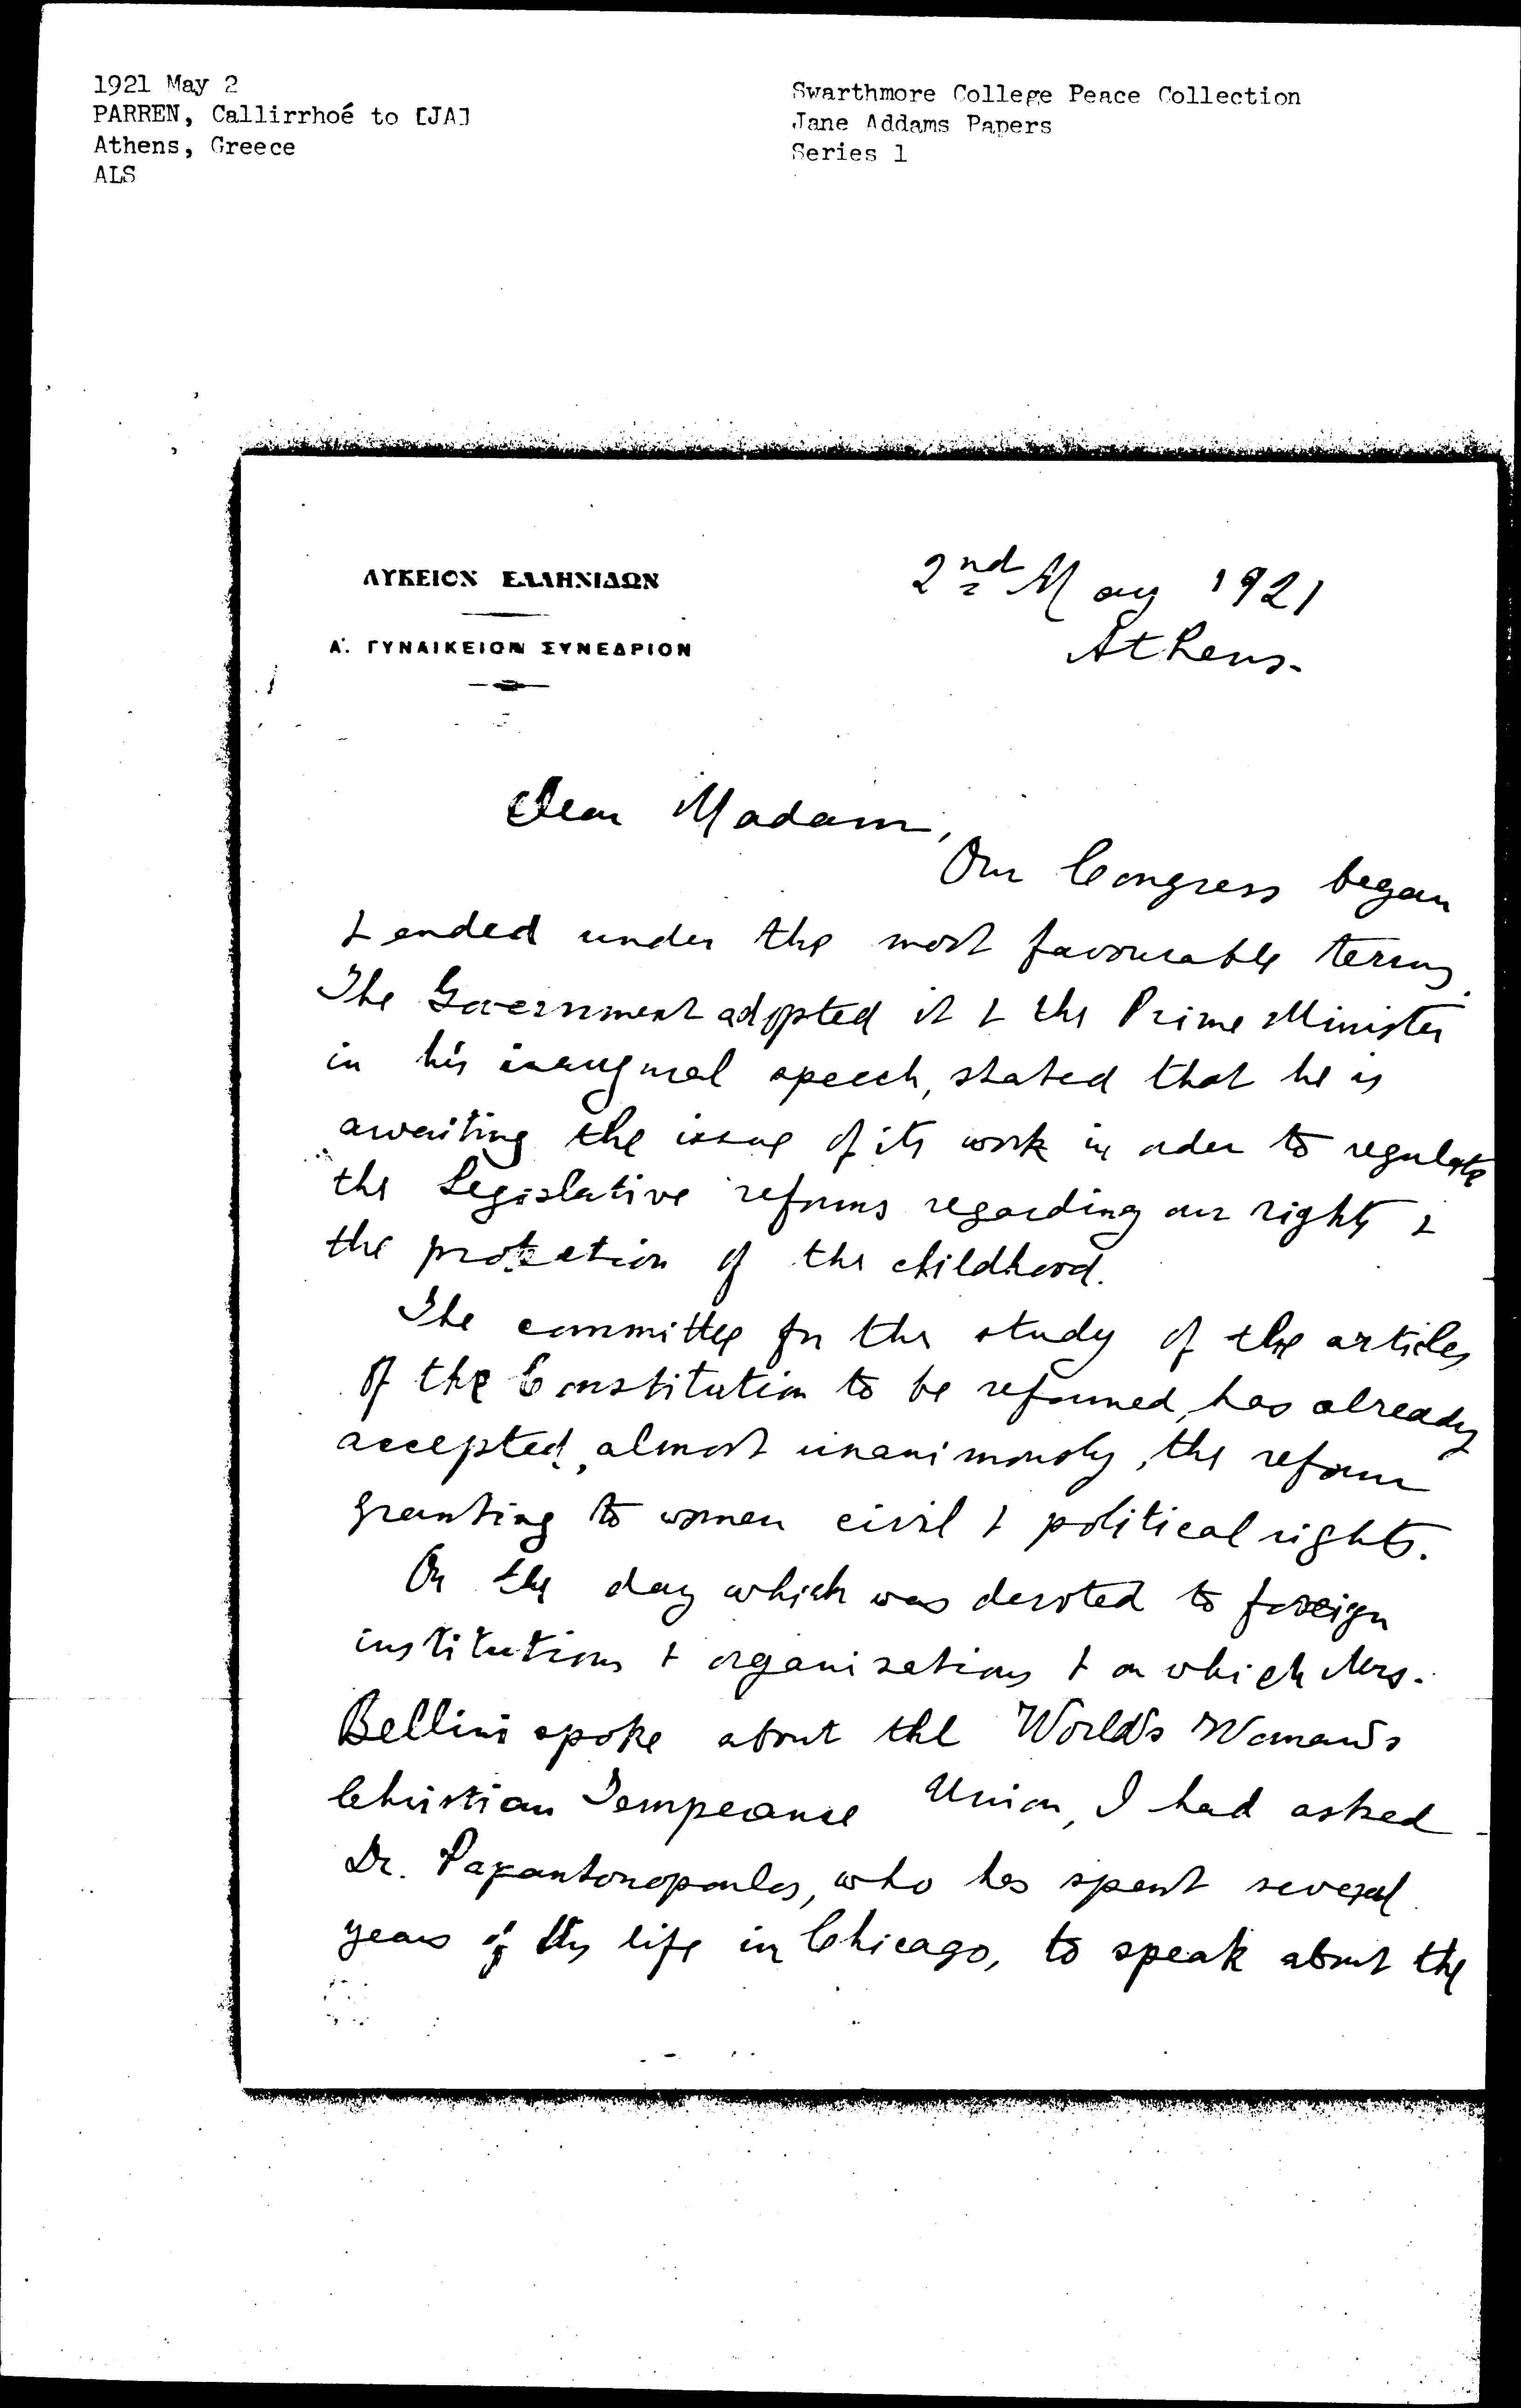 1921 May 2
PARREN, Callirrhoé to [JA]
Athens, Greece
ALS
Swarthmore College Peace Collection
Jane Addams Papers
Series 1
ΛΥΚΕΙΟΝ ΕΛΛΗΝΙΔΩΝ
Α΄. ΓΥΝΑΙΚΕΙΟΝ ΣΥΝΕΔΡΙΟΝ
2nd May 1921
Athens.
Dear Madam,
Our Congress began
& ended under the most favourable terms.
The Government adopted it & the Prime Minister
in his inaugural speech, stated that he is
awaiting the issue of its work in order to regulate
the Legislative reforms regarding our rights &
the protection of the childhood.
The committee for the study of the articles
of the Constitution to be reformed, has already
accepted, almost unanimously, the reform
granting to women civil & political rights.
On the day which was devoted to foreign
institutions & organisations & on which Mrs.
Bellini spoke about the World's Woman's
Christian Temperance Union, I had asked
Dr. Papantonopoulos, who has spent several
years of his life in Chicago, to speak about the